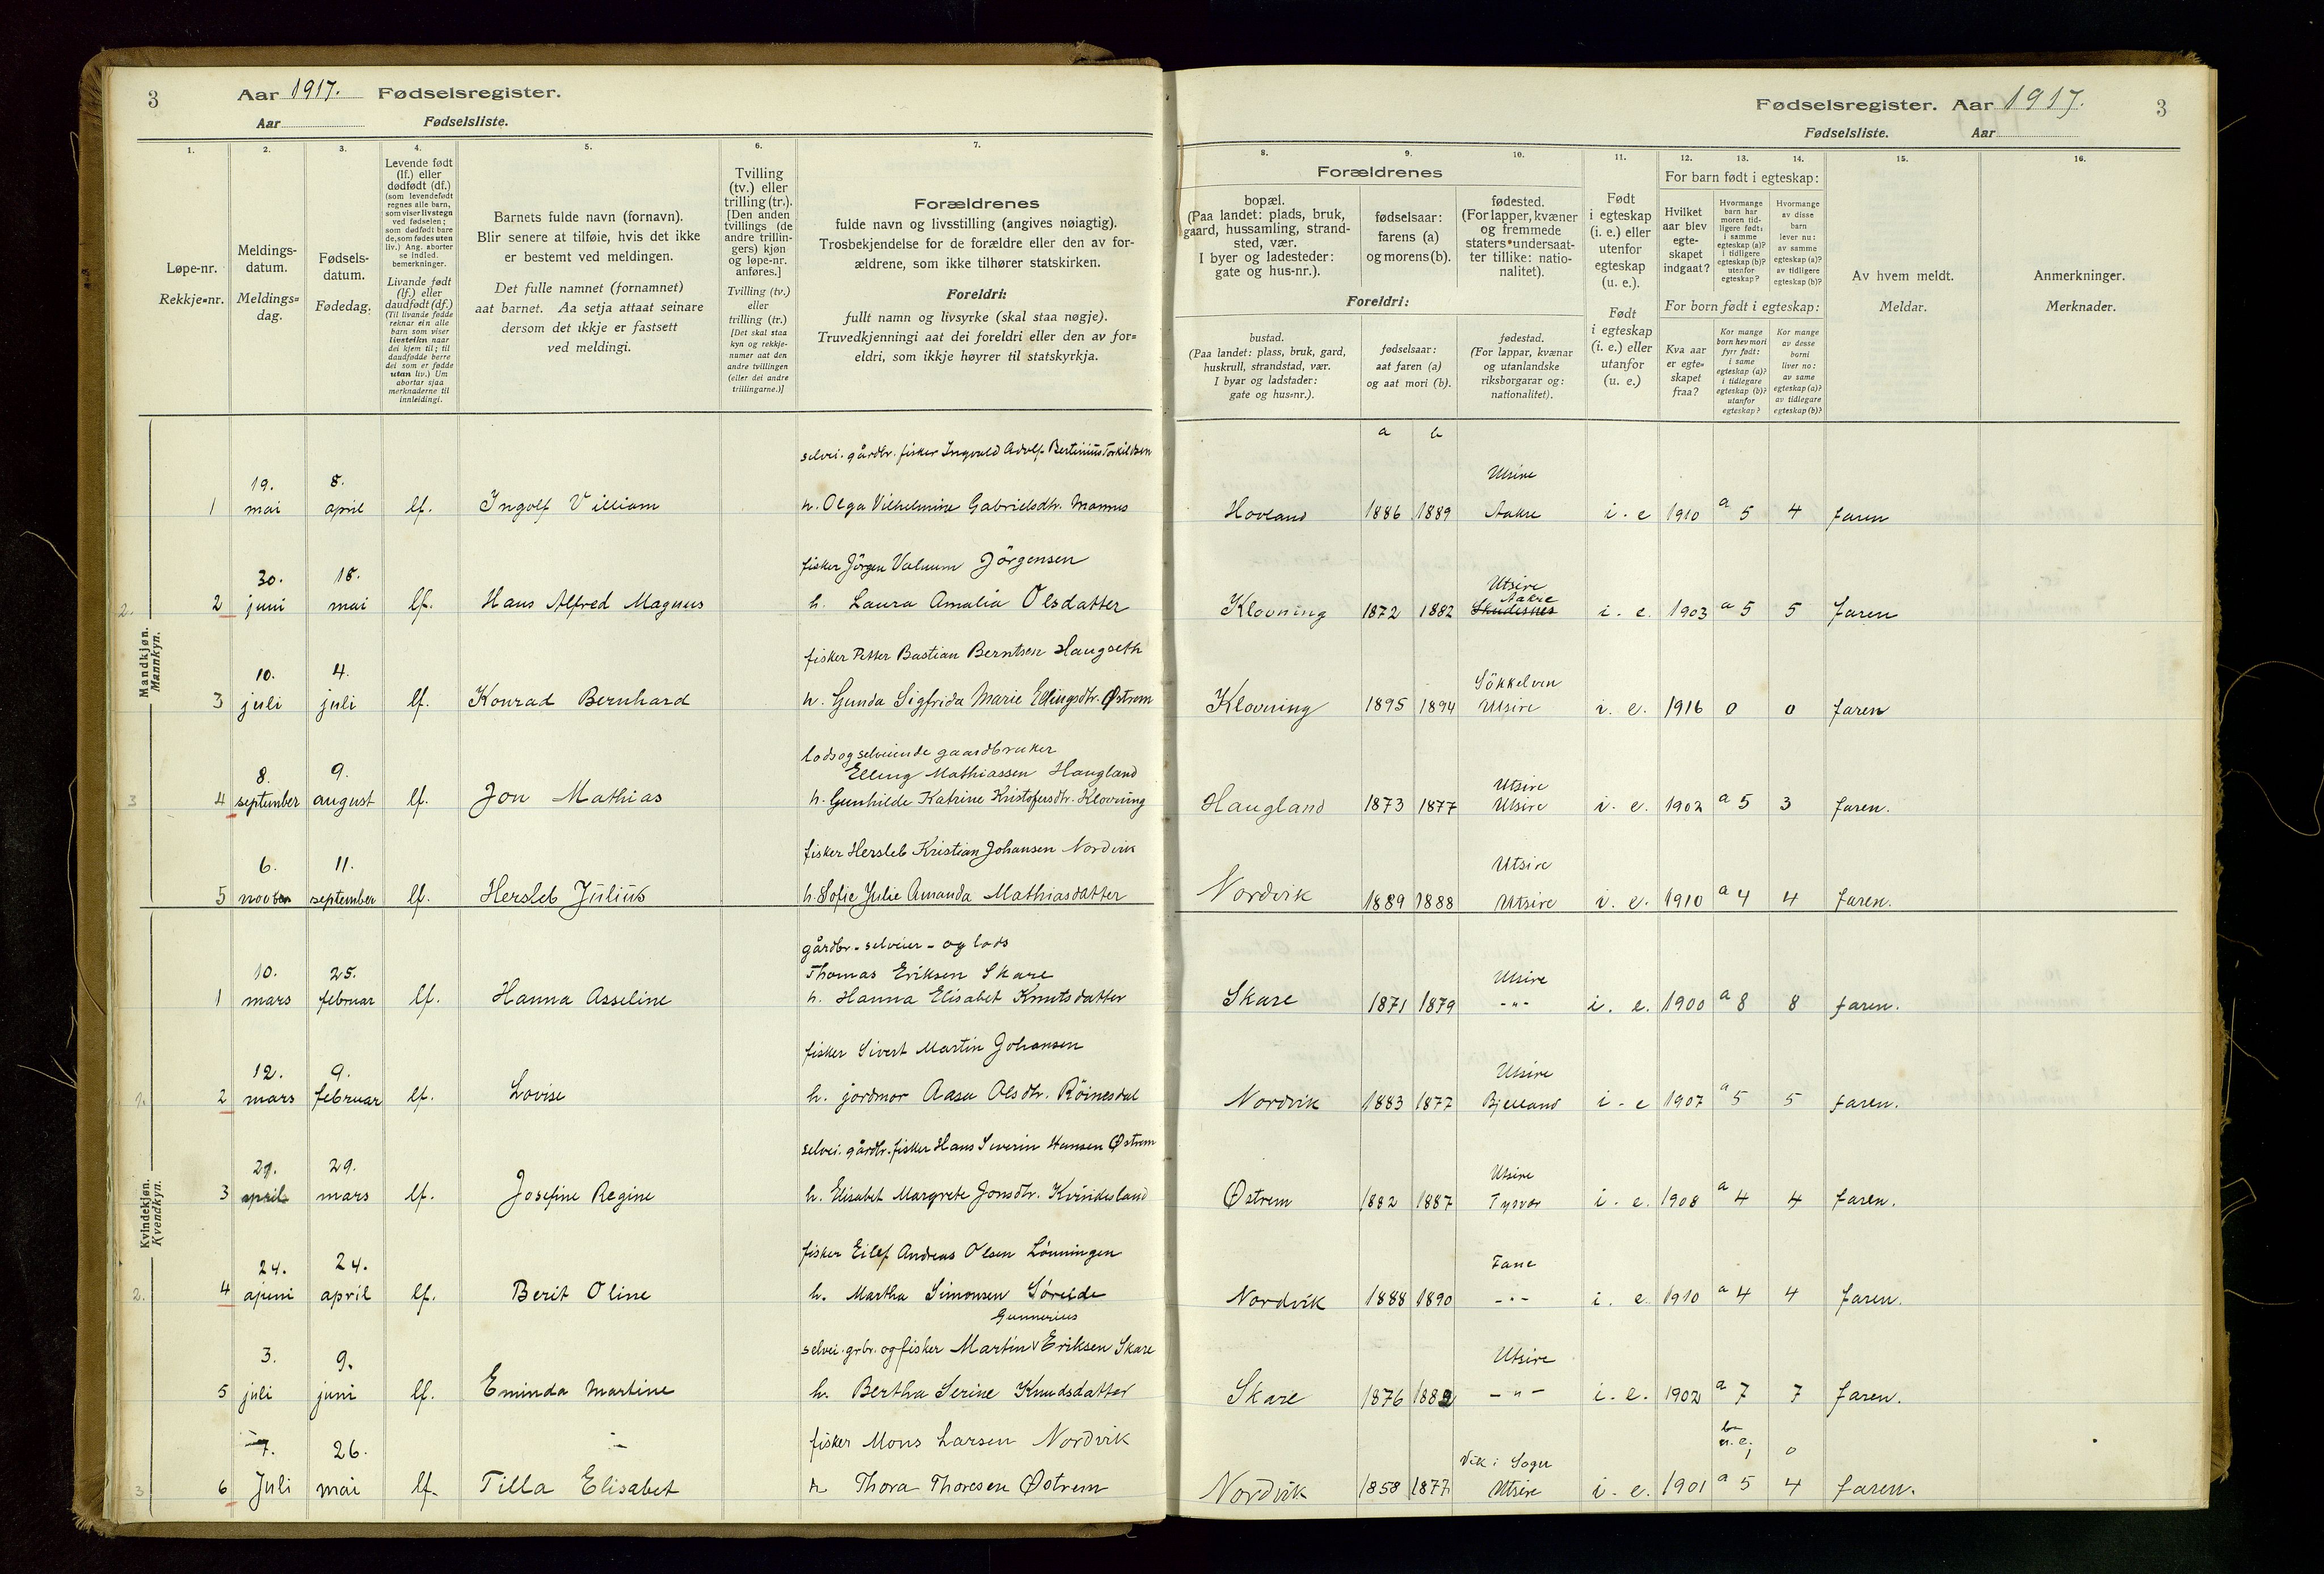 3
Aar 1917. Fødselsregister.
Aar Fødselsliste.
Fødselsregister. Aar 1917.
3
Fødselsliste. Aar
1. 2. 3. 4. 5. 6. 7. 8. 9. 10. 11. 12. 13. 14. 15. 16.
Løpe-nr.
Rekkje-nr.
Meldings-
datum.
Meldings-
dag.
Fødsels-
datum.
Fødedag.
Levende født
(lf.) eller
dødfødt (df.)
(som levendefødt
regnes alle barn,
som viser livstegn
ved fødselen;
som dødfødt bare
de, som fødes uten
liv.) Ang. aborter
se indled.
bemerkninger.
Livande født
(lf.) eller
daudfødt (df.)
(Til livande fødde
reknar ein alle
barn som viser
livsteikn naar
dei kjem til; til
daudfødde berre
dei som er fødde
utan liv.) Um
abortar sjaa
merknaderne til
innleidingi.
Barnets fulde navn (fornavn).
Blir senere at tilføie, hvis det ikke
er bestemt ved meldingen.
Det fulle namnet (fornamnet)
aat barnet. Aa setja attaat seinare
dersom det ikkje er fastsett
ved meldingi.
Tvilling
(tv.) eller
trilling (tr.).
[Den anden
tvillings (de
andre trillin-
gers) kjøn
og løpe-nr.
anføres.]
Tvilling (tv.)
eller
trilling (tr.)
[Det skal staa
kyn og rekkje-
numer aat den
andre tvillingen
(eller dei andre
trillingarne.)]
Forældrenes
fulde navn og livsstilling (angives nøiagtig).
Trosbekjendelse for de forældre eller den av for-
ældrene, som ikke tilhører statskirken.
Foreldri:
fullt namn og livsyrke (skal staa nøgje).
Truvedkjenningi aat dei foreldri eller den av for-
eldri, som ikkje høyrer til statskyrkja.
Forældrenes
bopæl.
(Paa landet: plads, bruk,
gaard, hussamling, strand-
sted, vær.
I byer og ladesteder:
gate og hus-nr.).
fødselsaar:
farens (a)
og morens (b).
fødested.
(For lapper, kvæner
og fremmede
staters undersaat-
ter tillike: natio-
nalitet).
Foreldri:
bustad.
(Paa landet: plass, bruk, gard,
huskrull, strandstad, vær.
I byar og ladstader:
gate og hus-nr.).
fødselsaar:
aat faren (a)
og aat mori (b).
fødestad.
(For lappar, kvænar
og utanlandske
riksborgarar og:
nationalitet).
Født
i egteskap
(i. e.) eller
utenfor
egteskap
(u. e.).
Født
i egteskap
(i. e.) eller
utanfor
(u. e.)
For barn født i egteskap:
Hvilket
aar blev
egte-
skapet
indgaat?
Hvormange
barn har
moren tid-
ligere født:
i samme
egteskap (a)?
i tidligere
egteskap (b)?
utenfor
egteskap?
Hvormange
av disse
barn
lever nu:
av samme
egteskap (a)?
av tidligere
egteskap (b)?
For born født i egteskap:
Kva aar
er egte-
skapet
fraa?
Kor mange
born hev mori
fyrr født:
i same
egteskap (a)?
i tidlegare
egteskap (b)?
utanfor
egteskap?
Kor mange
av desse
borni
liver no:
av same
egteskap (a)?
av tidlegare
egteskap (b)?
Av hvem meldt.
Meldar.
Anmerkninger.
Merknader.
Mandkjøn.
Mannkyn.
a b
selvei. gårdbr. fisker Ingvald Adolf Bertinius Torkildsen
19. 8. Utsire
1 mai april lf. Ingolf Villiam h. Olga Vilhelmine Gabrielsdtr. Hovland 1886 1889 Aakre i. e 1910 a 5 4 faren
fisker Jörgen Jörgensen
30. 18. Utsire
Aakre
2. 2 juni mai lf. Hans Alfred Magnus h. Laura Amalia Olsdatter Klovning 1872 1882 Skudesnes i. e. 1903 a 5 5 faren
fisker Petter Bastian Berntsen Haugseth
10. 4. Sökkelven
3 juli juli lf. Konrad Bernhard h. Gunda Sigfrida Marie Ellingsdtr. Østrem Klovning 1895 1894 Utsire i. e. 1916 0 0 faren
lods og selveiende gaardbruker
8. 9. Elling Mathiassen Haugland Utsire
3 4 september august lf. Jon Mathias h. Gunhilde Katrine Kristofersdtr. Klovning Haugland 1873 1877 Utsire i. e. 1902 a 5 3 faren.
fisker Hersleb Kristian Johansen Nordvik
6. 11. Utsire
5 novbr september lf. Hersleb Julius h. Sofie Julie Amanda Mathiasdatter Nordvik 1889 1888 Utsire i. e. 1910 a 4 4 faren.
Kvindekjøn.
Kvendkyn.
gårdbr. - selveier - og lods
10. 25. Thomas Eriksen Skare Utsire
1 mars februar lf. Hanna Asseline h. Hanna Elisabet Knutsdatter Skare 1871 1879 - " - i. e. 1900 a 8 8 faren.
fisker Sivert Martin Johansen
12. 9. Utsire
1. 2 mars februar lf. Lovise h. jordmor Aasa Olsdtr. Röinesdal Nordvik 1883 1877 Bjelland i. e 1907 a 5 5 faren.
selvei. gårdbr. fisker Hans Severin Hansen Østrem
29. Utsire
3 april mars lf. Josefine Regine h. Elisabet Margrete Jonsdtr. Kvindesland Østrem 1882 1887 Tysvær i. e. 1908 a 4 4 faren.
fisker Eilef Andreas Olsen Lönningen
24. 24. Fane
2. 4 april lf. Berit Oline h. Martha Simonsen Søreide Nordvik 1888 1890 - " - i. e. 1910 a 4 4 faren.
Gunnerius
selvei. grbr. og fisker Martin Eriksen Skare
3. 9. Utsire
5 juli juni lf. Eminda Martine h. Bertha Serine Knudsdatter Skare 1876 1882 - " - i. e. 1902 a 7 7 faren.
fisker Mons Larsen Nordvik
7. 26. Vik i Sogn u. e. 1 0
3 6 Juli mai lf. Tilla Elisabet h Thora Thoresen Østrem Nordvik 1858 1877 Utsire i. e. 1901 a 5 4 faren.